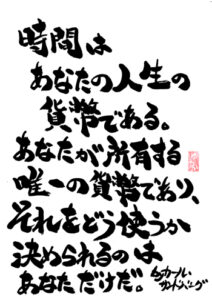 時間は
あなたの人生の
貨幣である。
あなたが所有する
唯一の貨幣であり、
それをどう使うか
決められるのは
あなただけだ。
byカール・
サンドバーグ